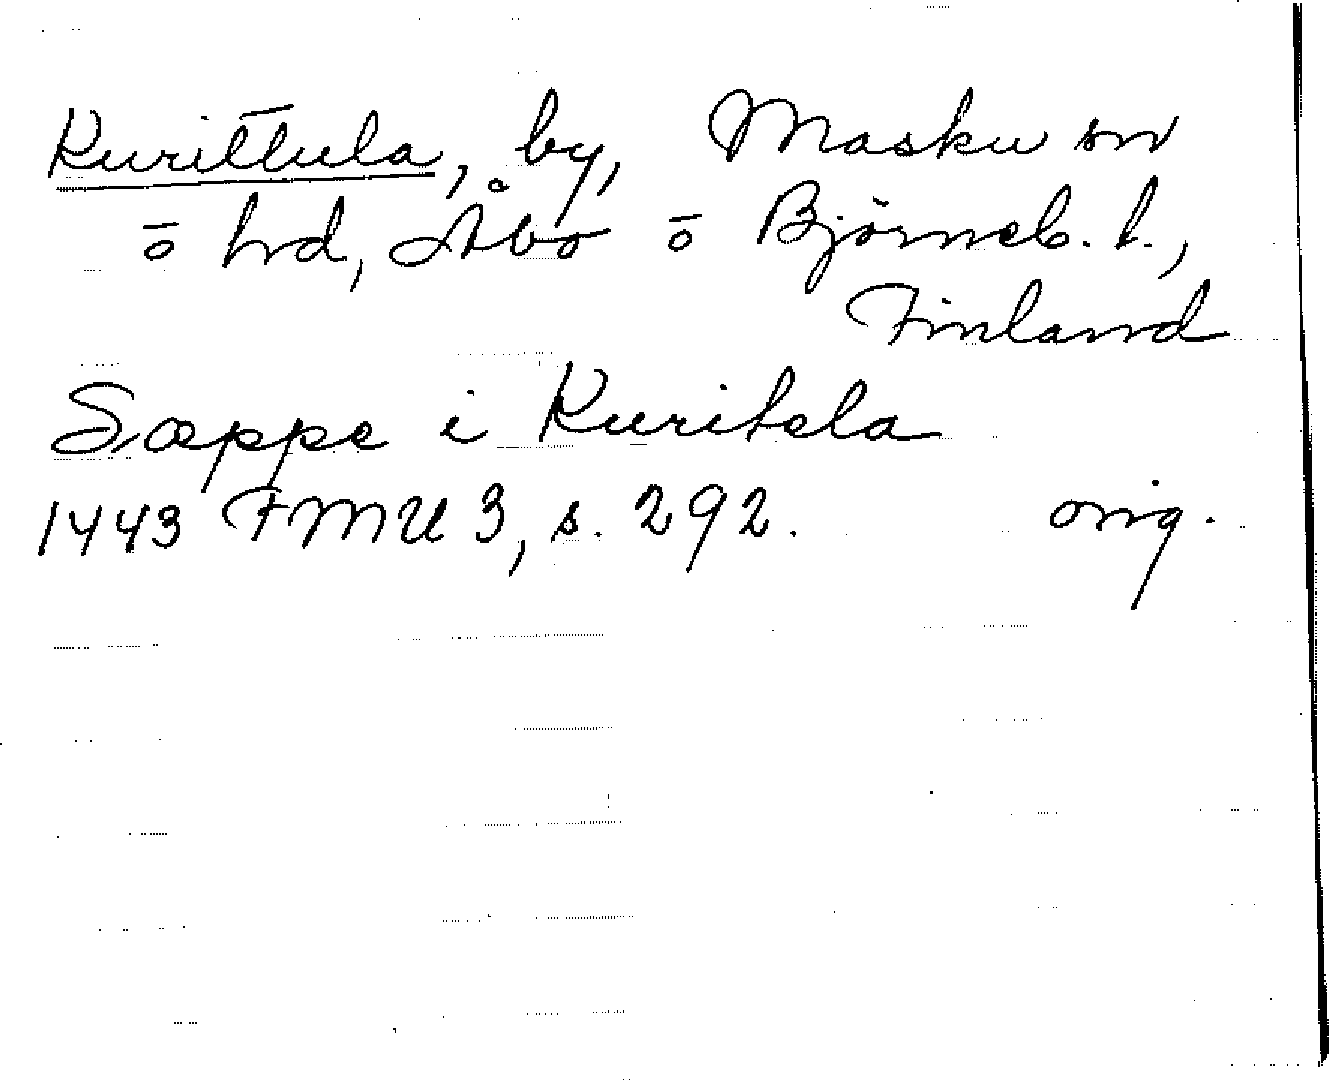 Kurittula, by, Masku sn
ō hd, Åbo ō Björneb. l.,
Finland
Sæppe i Kuritela
1443 FMU 3, s. 292. orig.